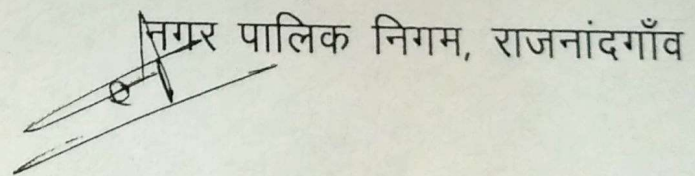 नगर पालिक निगम, राजनांदगाँव